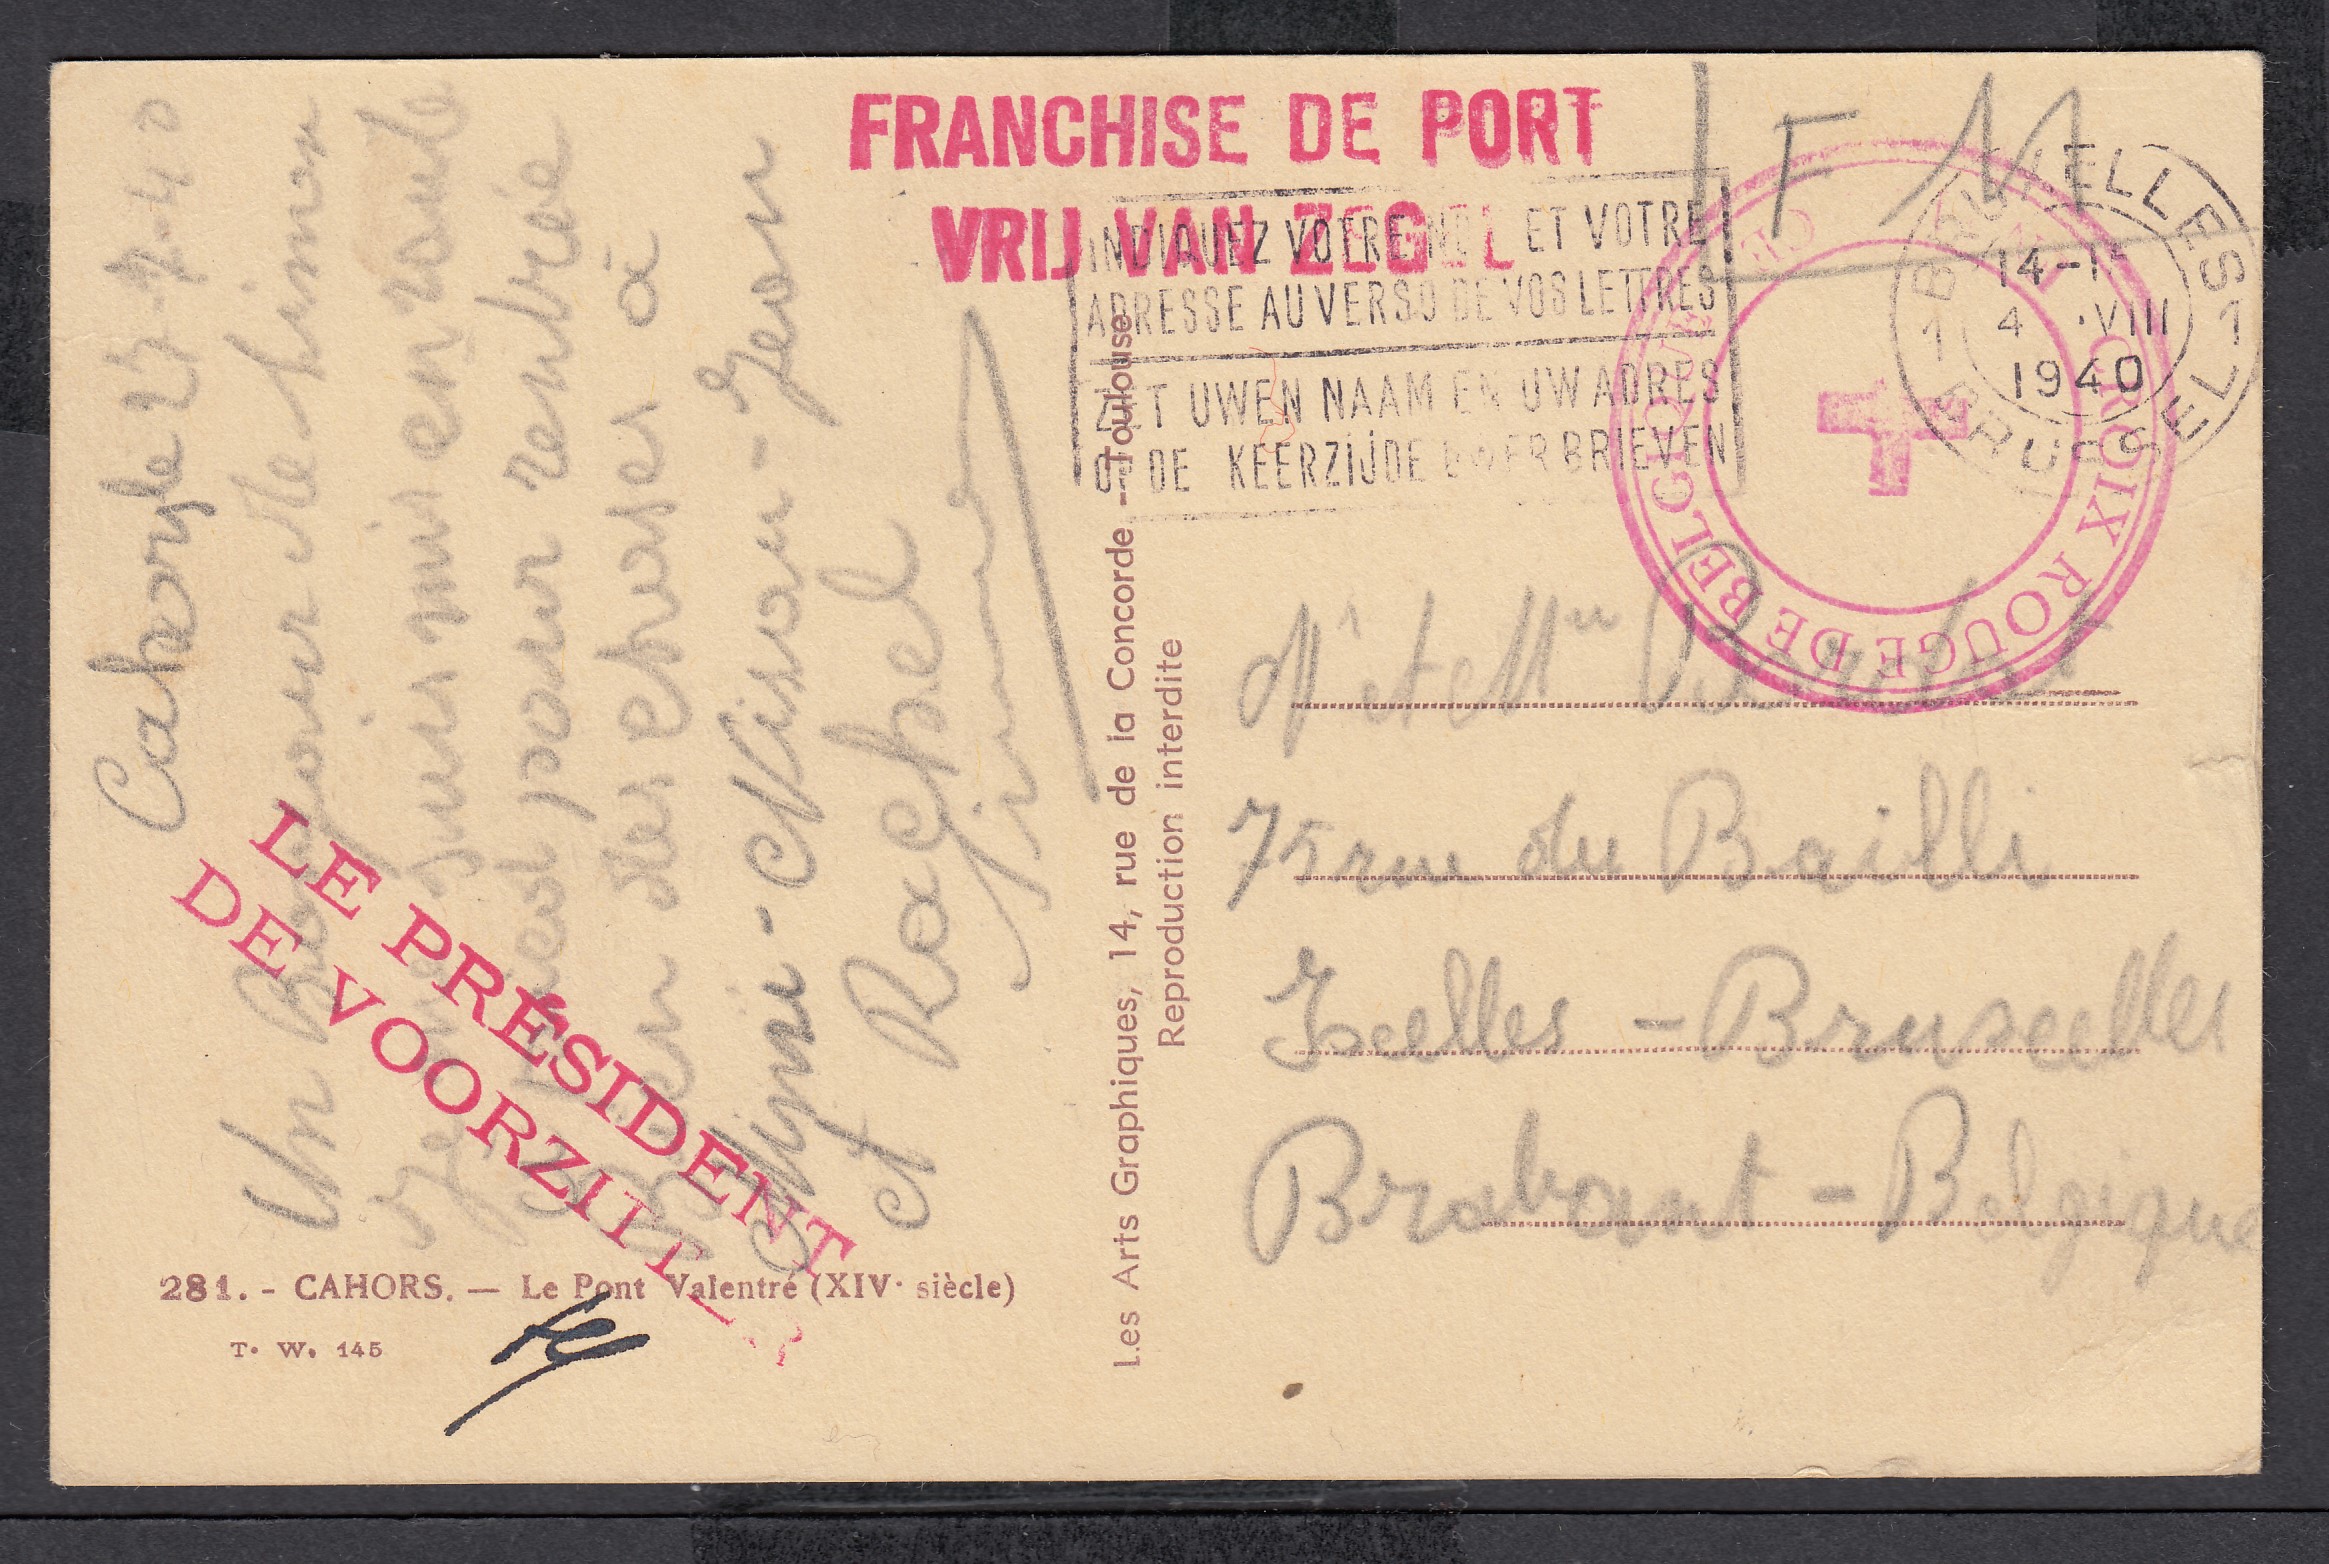 FRANCHISE DE PORT
VRIJ VAN ZEGEL
F M
INDIQUEZ VOTRE NOM ET VOTRE
ADRESSE AU VERSO DE VOS LETTRES
ZET UWEN NAAM EN UW ADRES
OP DE KEERZIJDE UWER BRIEVEN
BRUXELLES
14-1
4 ·VIII
1940
1 1
BRUSSEL
CROIX ROUGE DE BELGIQUE
Cahors le 27-7-40
Un
suis mis en route
pour rentrer
des choses à
Mimi - Nisou - Jean
et Rachel
LE PRÉSIDENT
DE VOORZITTER
281. - CAHORS. — Le Pont Valentré (XIVᵉ siècle)
T. W. 145
Les Arts Graphiques, 14, rue de la Concorde - Toulouse
Reproduction interdite
Mr et Mme
75 rue du Bailli
Ixelles - Bruxelles
Brabant - Belgique